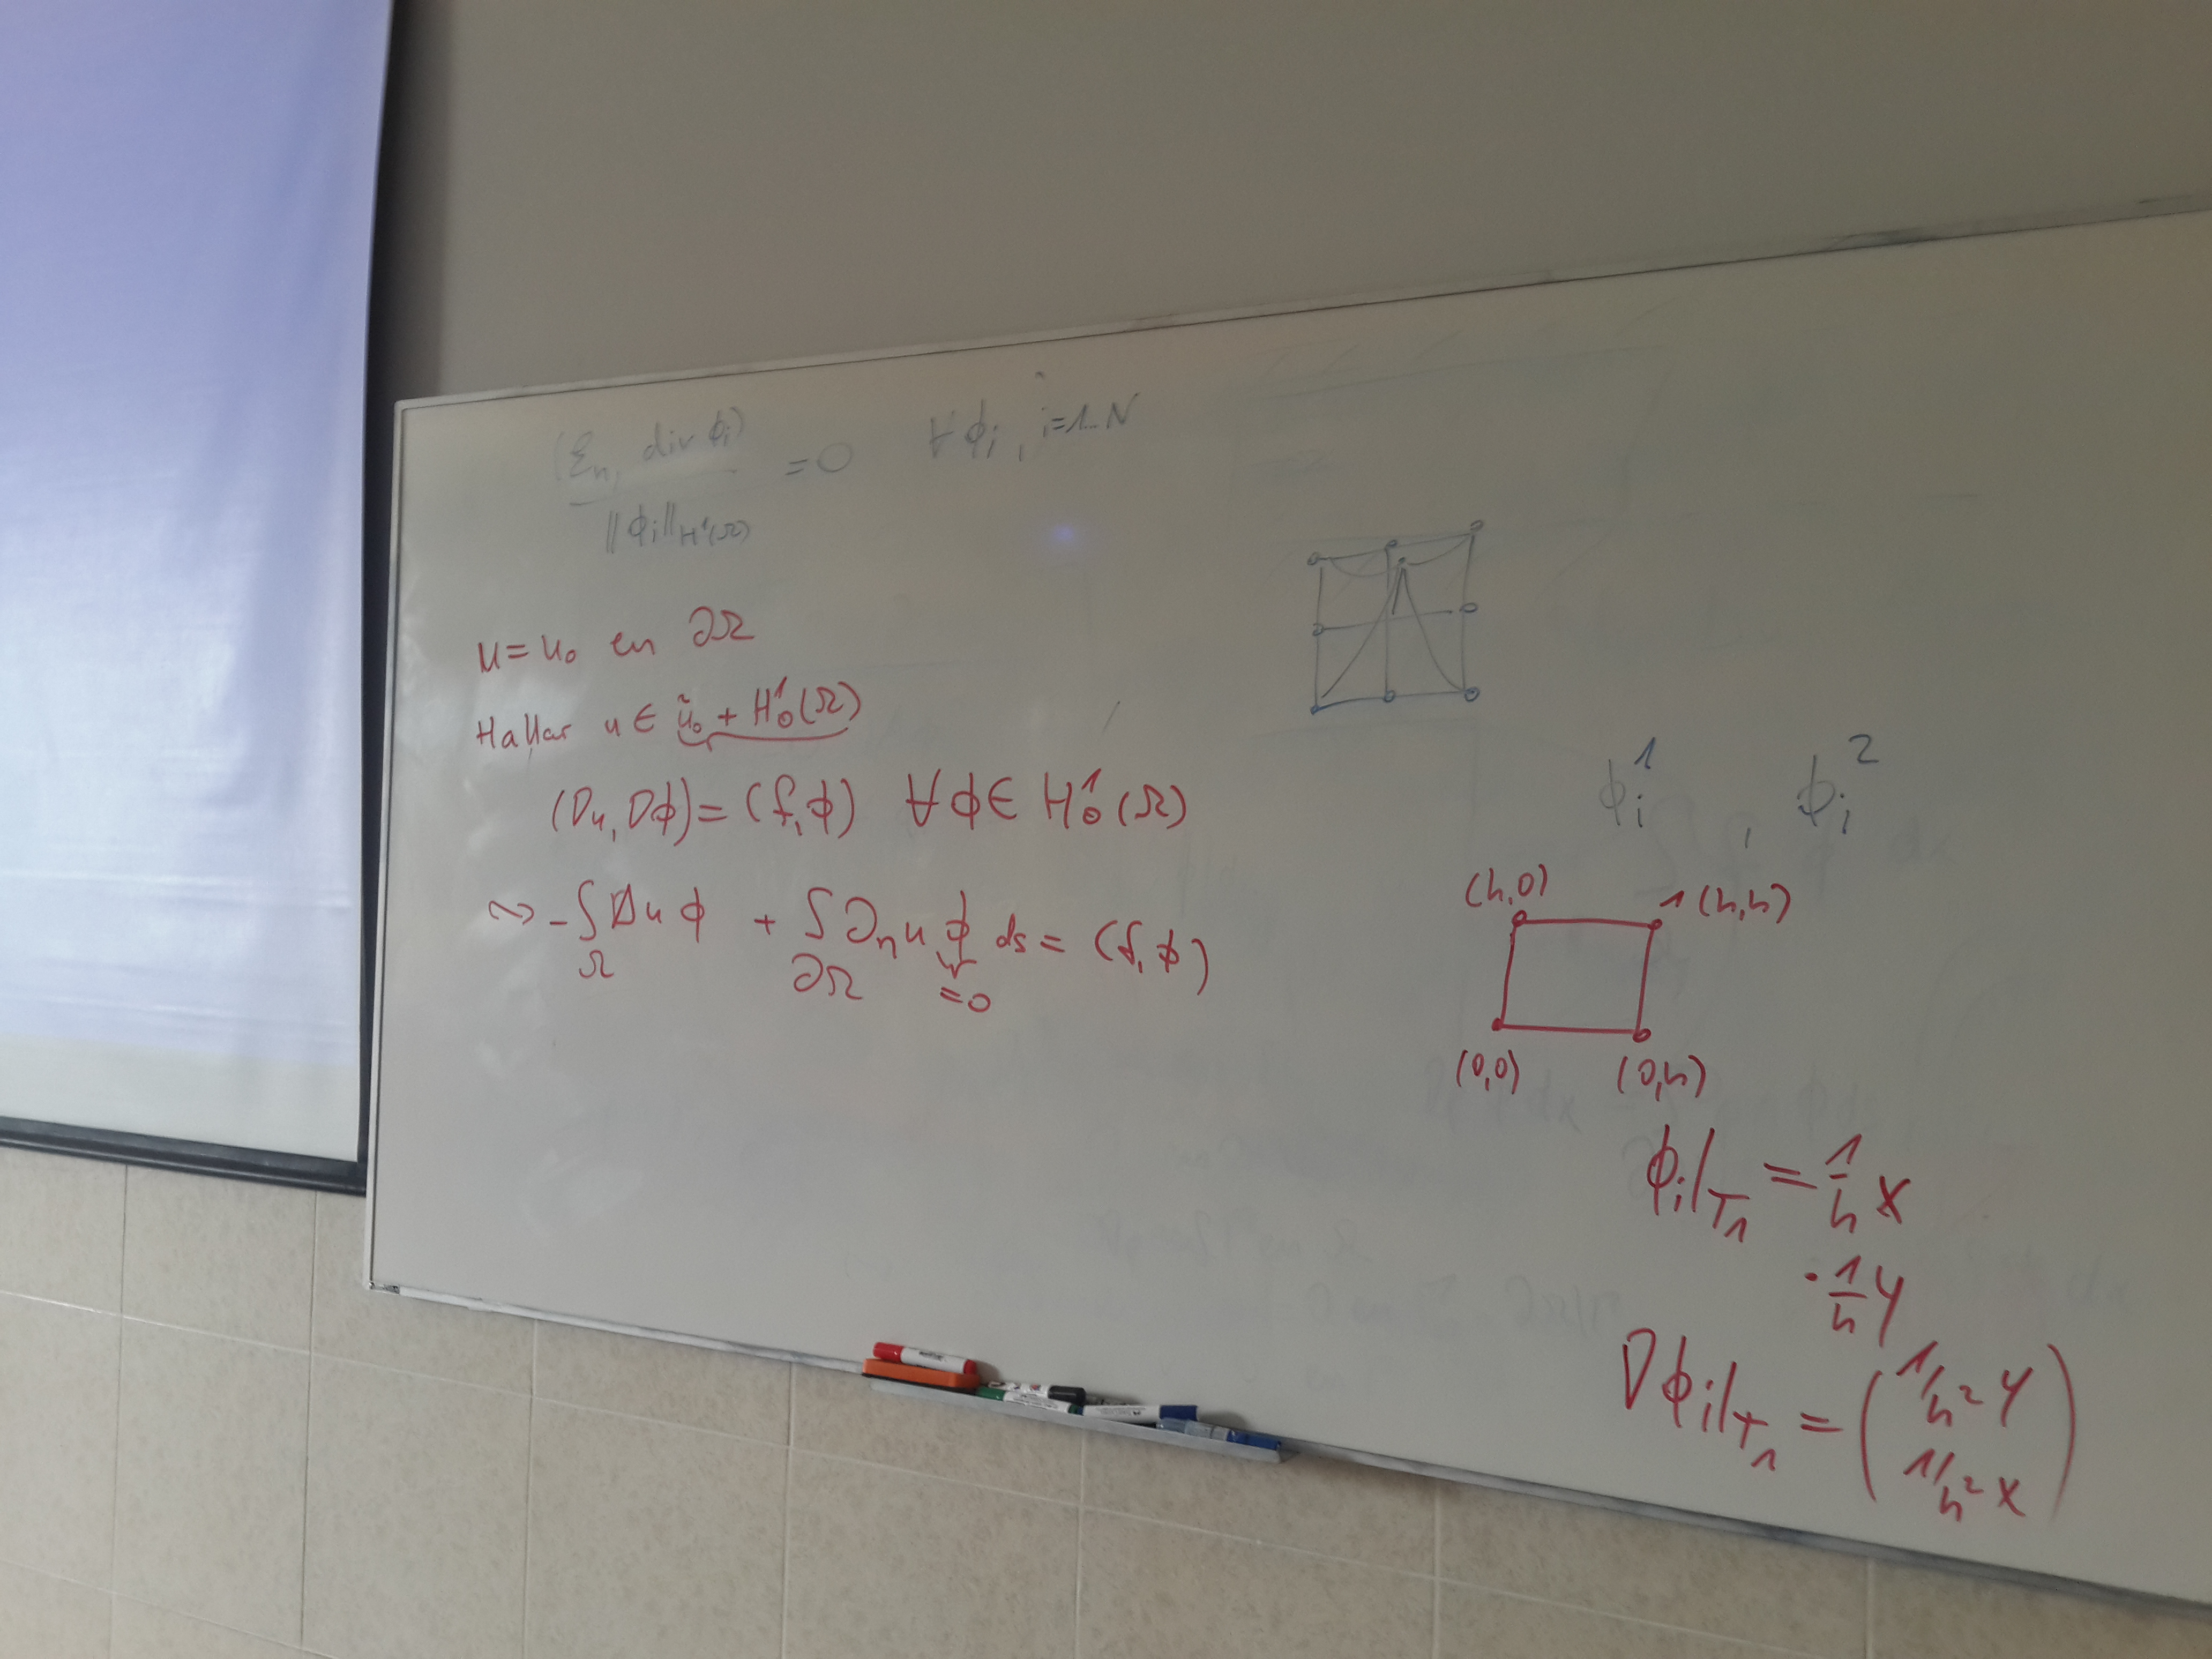 (ξₕ, div ϕᵢ) / ‖ϕᵢ‖_{H¹(Ω)} = 0 ∀ϕᵢ, i=1...N
u = u₀ en ∂Ω
Hallar u ∈ ũ₀ + H¹₀(Ω)
(∇u, ∇ϕ) = (f, ϕ) ∀ϕ ∈ H¹₀(Ω)
⇝ -∫_Ω Δu ϕ + ∫_{∂Ω} ∂ₙu ϕ ds = (f, ϕ)
=0
ϕᵢ¹, ϕᵢ²
(h,0) 1 (h,h)
(0,0) (0,h)
ϕᵢ|_{T₁} = 1/h x
· 1/h y
∇ϕᵢ|_{T₁} = ( 1/h² y
1/h² x )